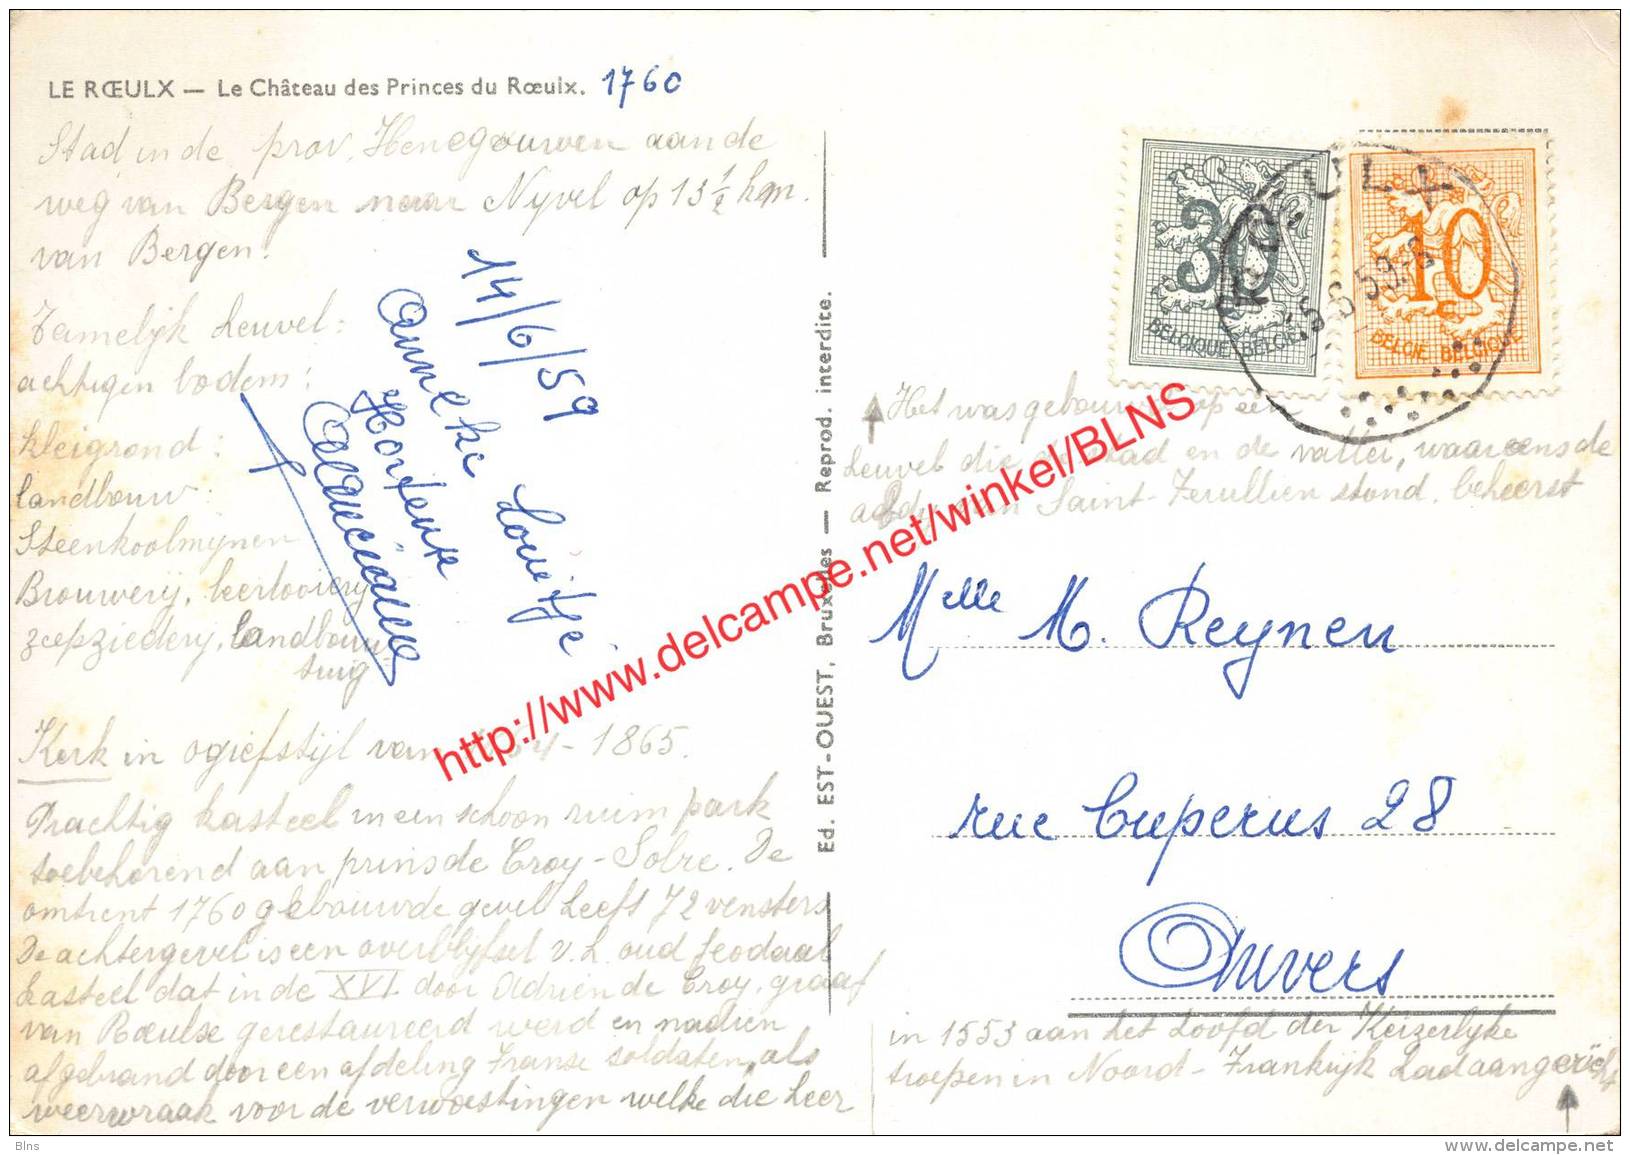 LE RŒULX — Le Château des Princes du Rœulx. 1760
Stad in de prov. Henegouwen aan de
weg van Bergen naar Nyvel op 13 1/2 km.
van Bergen.
Tamelijk heuvel-
achtigen bodem:
kleigrond:
landbouw.
Steenkoolmynen
Brouwery, leerlooiery
zeepziedery, landbouw-
tuig
Kerk in ogiefstijl van - 1865.
Prachtig kasteel in een schoon ruim park
toebehorend aan prins de Croy-Solre. De
omtrent 1760 gebouwde gevel heeft 72 vensters
De achtergevel is een overblijfsel v. h. oud feodaal
kasteel dat in de XVI door Adrien de Croy, graaf
van Rœulse gerestaureerd werd en nadien
afgebrand door een afdeling Franse soldaten, als
weerwraak voor de verwoestingen welke die heer
14/6/59
Anneke Louitje
Hortense
Ed. EST-OUEST, Bruxelles — Reprod. interdite.
30
BELGIQUE BELGIË
10
BELGIË BELGIQUE
RŒULX
-5-6-59.-8
Het was gebouwd op een
heuvel die de stad en de vallei, waareens de
abdy van Saint-Feuillien stond, beheerst
Melle M. Reynen
rue Cuperus 28
Anvers
in 1553 aan het hoofd der Keizerlyke
troepen in Noord-Frankrijk had aangericht
http://www.delcampe.net/winkel/BLNS
Blns
www.delcampe.net